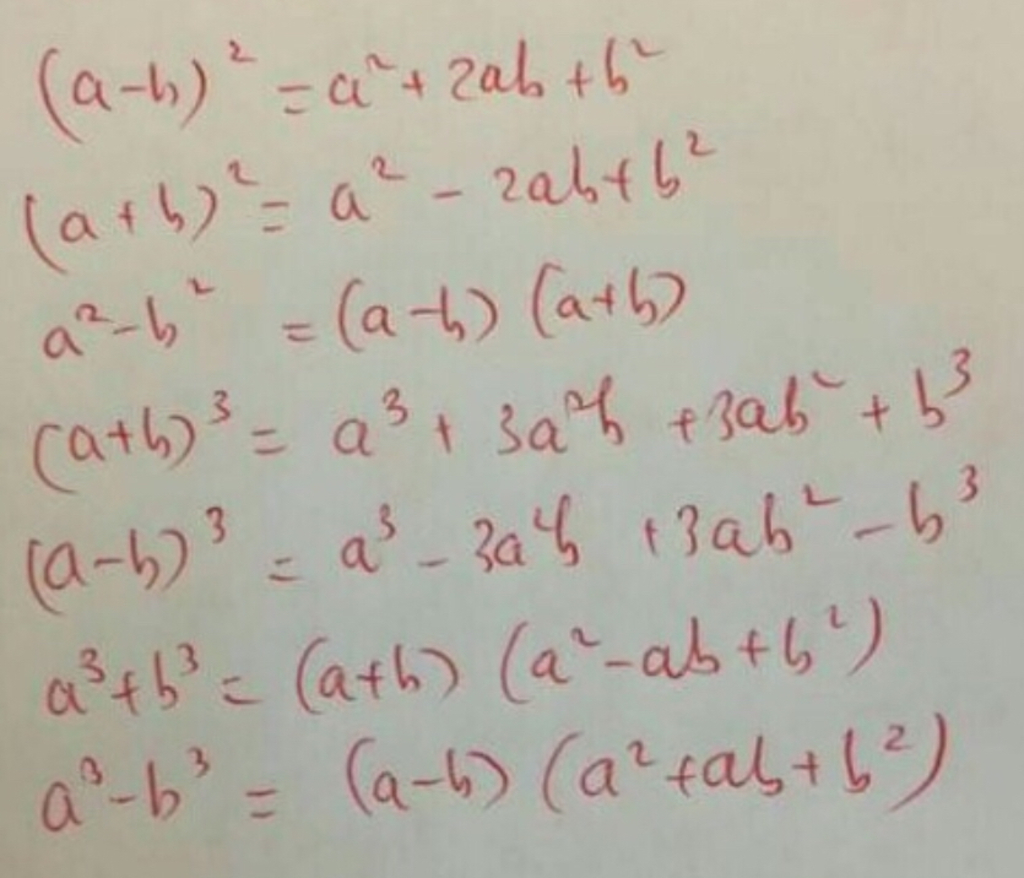 (a-b)² = a² + 2ab + b²
(a+b)² = a² - 2ab + b²
a² - b² = (a-b) (a+b)
(a+b)³ = a³ + 3a²b + 3ab² + b³
(a-b)³ = a³ - 3a²b + 3ab² - b³
a³ + b³ = (a+b) (a² - ab + b²)
a³ - b³ = (a-b) (a² + ab + b²)